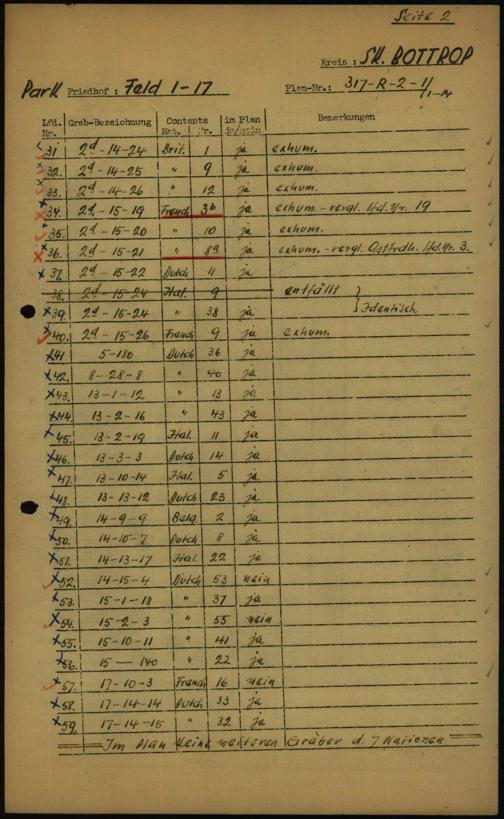 Seite 2
Kreis : SK. BOTTROP
Park Friedhof : Feld 1-17
Plan-Nr.: 317-R-2-1/1-14
Lfd. Nr. Grab-Bezeichnung Contents Nat. Nr. im Plan ja/nein Bemerkungen
31. 2d-14-24 Brit. 1 ja exhum.
32. 2d-14-25 " 9 ja exhum.
33. 2d-14-26 " 12 ja exhum.
34. 2d-15-19 French 3b ja exhum. - vergl. lfd. Nr. 19
35. 2d-15-20 " 10 ja exhum.
36. 2d-15-21 " 8a ja exhum. - vergl. Ostfrdh. lfd. Nr. 3.
37. 2d-15-22 Dutch 11 ja
38. 2d-15-24 Ital. 9 entfällt } Identisch
39. 2d-15-24 " 38 ja
40. 2d-15-26 French 9 ja exhum.
41 5-180 Dutch 36 ja
42. 8-28-8 " 40 ja
43. 13-1-12 " 13 ja
44. 13-2-16 " 43 ja
45. 13-2-19 Ital. 11 ja
46. 13-3-3 Dutch 14 ja
47. 13-10-14 Ital. 5 ja
48. 13-13-12 Dutch 23 ja
49. 14-9-9 Belg. 2 ja
50. 14-10-7 Dutch 8 ja
51. 14-13-17 Ital. 22 ja
52. 14-15-4 Dutch 53 nein
53. 15-1-18 " 37 ja
54. 15-2-3 " 55 nein
55. 15-10-11 " 41 ja
56. 15 — 140 " 22 ja
57. 17-10-3 French 16 nein
58. 17-14-14 Dutch 33 ja
59. 17-14-15 " 32 ja
Im Plan keine weiteren Gräber d. 7 Nationen